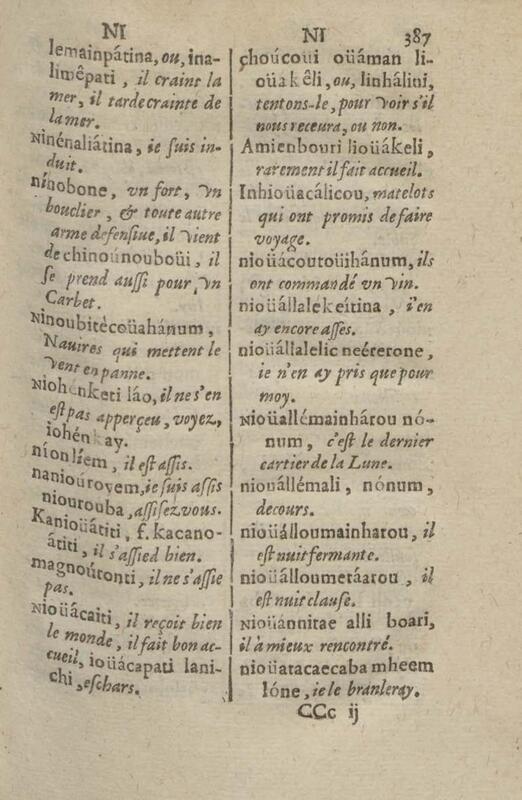 NI
NI 387
lemainpátina, ou, ina-
limêpati, il craint la
mer, il tarde crainte de
la mer.
Ninénaliátina, ie suis in-
duit.
ninobone, vn fort, vn
bouclier, & toute autre
arme defensiue, il vient
de chinoúnouboüi, il
se prend aussi pour vn
Carbet.
Ninoubitècoüahánum,
Nauires qui mettent le
vent en panne.
Niohénketi láo, il ne s'en
est pas apperçeu, voyez,
iohénkay.
níonlíem, il est assis.
naniouroyem, ie suis assis
niourouba, assisez vous.
Kanioüátiti, f. kacano-
átiti, il s'assied bien.
magnoúronti, il ne s'assie
pas.
Nioüácaiti, il reçoit bien
le monde, il fait bon ac-
cueil, ioüácapati lani-
chi, eschars.
çhoúcoui oüáman li-
oüakêli, ou, linhálini,
tentons-le, pour voir s'il
nous receura, ou non.
Amienbouri lioüákeli,
rarement il fait accueil.
Inhioüacálicou, matelots
qui ont promis de faire
voyage.
nioüácoutoüihánum, ils
ont commandé vn vin.
nioüállalekeítina, i'en
ay encore asses.
nioüállalelic neérerone,
ie n'en ay pris que pour
moy.
Nioüallémainhárou nó-
num, c'est le dernier
cartier de la Lune.
niouállémali, nónum,
decours.
nioüálloumainharou, il
est nuit fermante.
nioüálloumetáarou, il
est nuit clause.
Nioüánnitae alli boari,
il à mieux rencontré.
nioüatacaecaba mheem
lóne, ie le branleray.
CCc ij